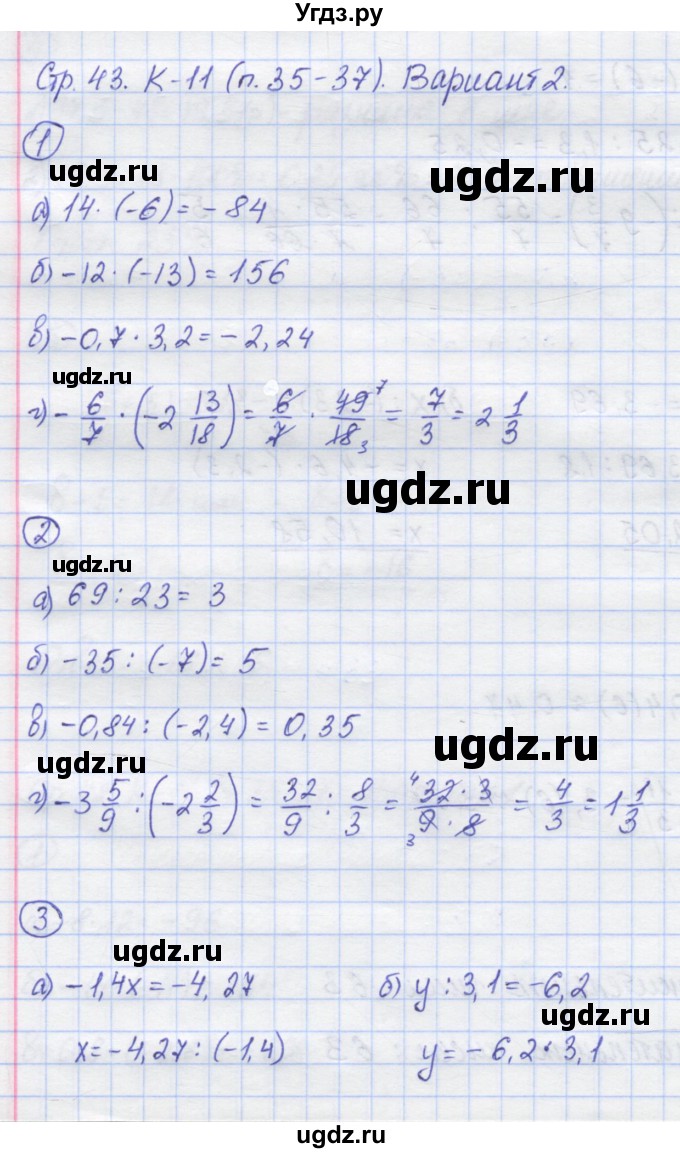 Угдз.ру
Стр. 43. К-11 (п. 35-37). Вариант 2.
1
ugdz.ru
а) 14 · (-6) = -84
ugdz.ru
б) -12 · (-13) = 156
в) -0,7 · 3,2 = -2,24
ugdz.ru
г) - 6/7 · (-2 13/18) = 6/7 · 49 7/18 3 = 7/3 = 2 1/3
ugdz.ru
2
ugdz.ru
а) 69 : 23 = 3
б) -35 : (-7) = 5
в) -0,84 : (-2,4) = 0,35
ugdz.ru
ugdz.ru
г) -3 5/9 : (-2 2/3) = 32/9 : 8/3 = 4 32 · 3/3 9 · 8 = 4/3 = 1 1/3
3
ugdz.ru
а) -1,4x = -4,27 б) y : 3,1 = -6,2
ugdz.ru
x = -4,27 : (-1,4) y = -6,2 · 3,1
ugdz.ru